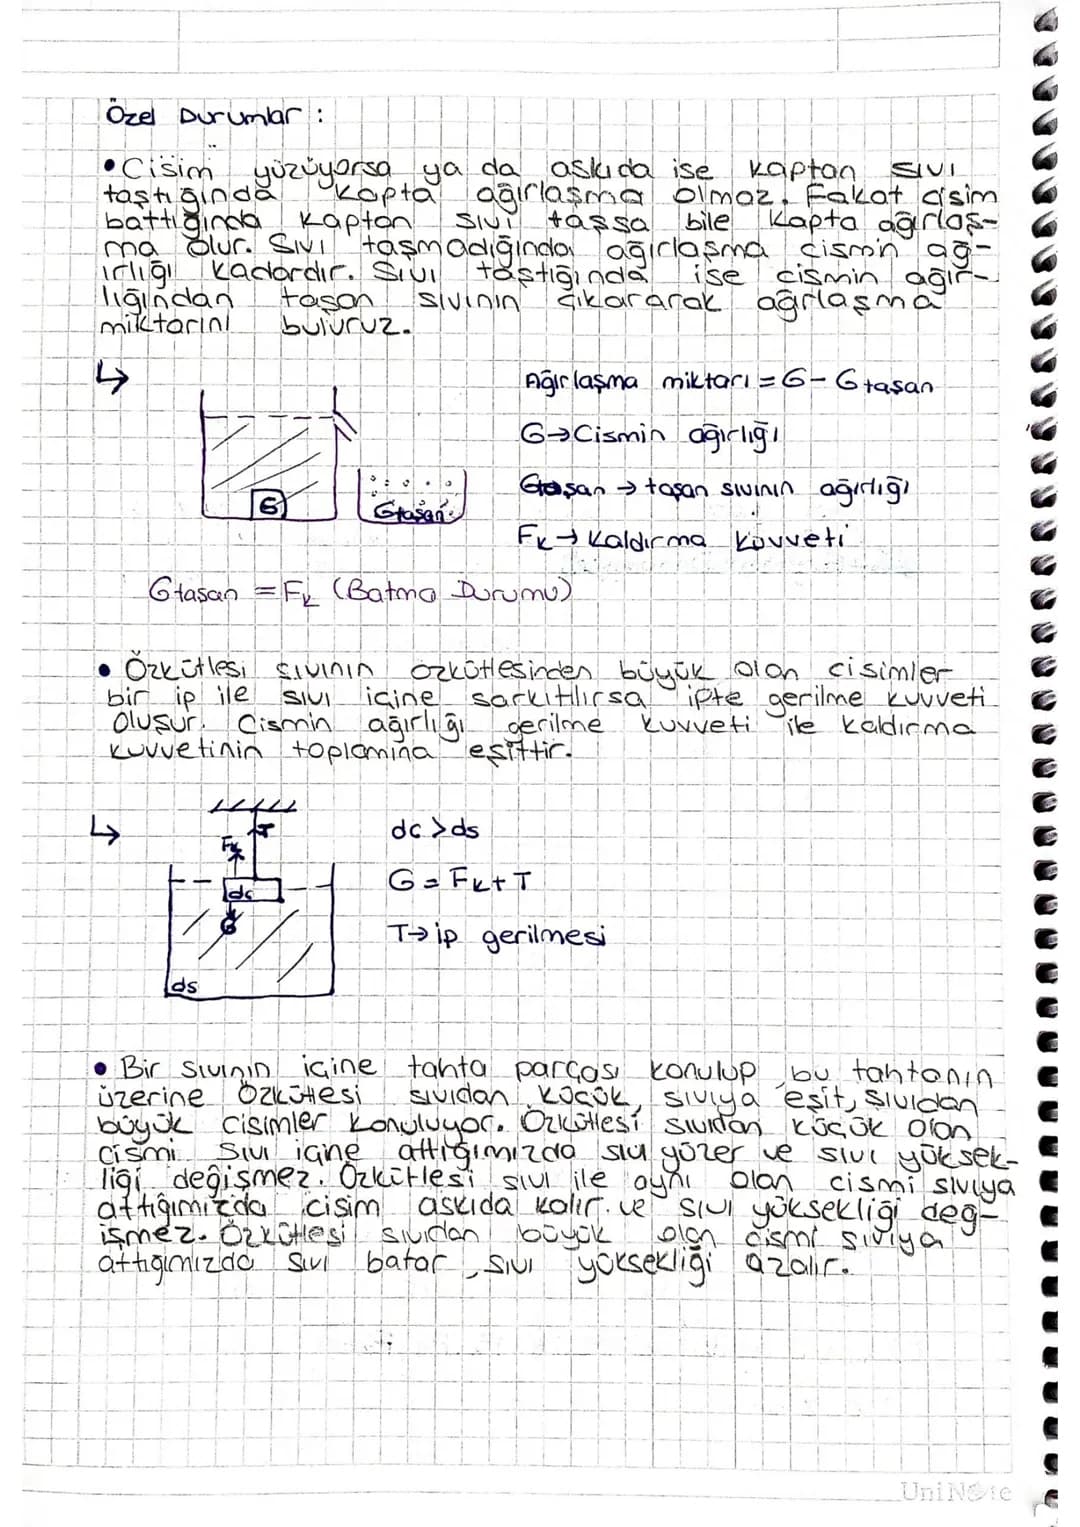 Özel Durumlar :
• Cisim yüzüyorsa ya da askıda ise kaptan sıvı
taştığında kapta ağırlaşma olmaz. Fakat cisim
battığında kaptan sıvı taşsa bile kapta ağırlaş-
ma olur. Sıvı taşmadığında ağırlaşma cismin ağ-
ırlığı kadardır. Sıvı taştığında ise cismin ağır-
lığından taşan sıvının çıkararak ağırlaşma
miktarını buluruz.
↳
Ağırlaşma miktarı = G - Gtaşan
G→Cismin ağırlığı
Gtaşan → taşan sıvının ağırlığı
Fk→ Kaldırma kuvveti
G
Gtaşan
Gtaşan = Fk (Batma Durumu)
• Özkütlesi sıvının özkütlesinden büyük olan cisimler
bir ip ile sıvı içine sarkıtılırsa ipte gerilme kuvveti
oluşur. Cismin ağırlığı gerilme kuvveti ile kaldırma
kuvvetinin toplamına eşittir.
↳
T
Fk
dc
G
ds
dc > ds
G = Fk + T
T→ ip gerilmesi
• Bir sıvının içine tahta parçası konulup bu tahtanın
üzerine özkütlesi sıvıdan küçük, sıvıya eşit, sıvıdan
büyük cisimler konuluyor. Özkütlesi sıvıdan küçük olan
cismi sıvı içine attığımızda sıvı yüzer ve sıvı yüksek-
liği değişmez. Özkütlesi sıvı ile aynı olan cismi sıvıya
attığımızda cisim askıda kalır ve sıvı yüksekliği değ-
işmez. Özkütlesi sıvıdan büyük olan cismi sıvıya
attığımızda sıvı batar, sıvı yüksekliği azalır.
UniNote